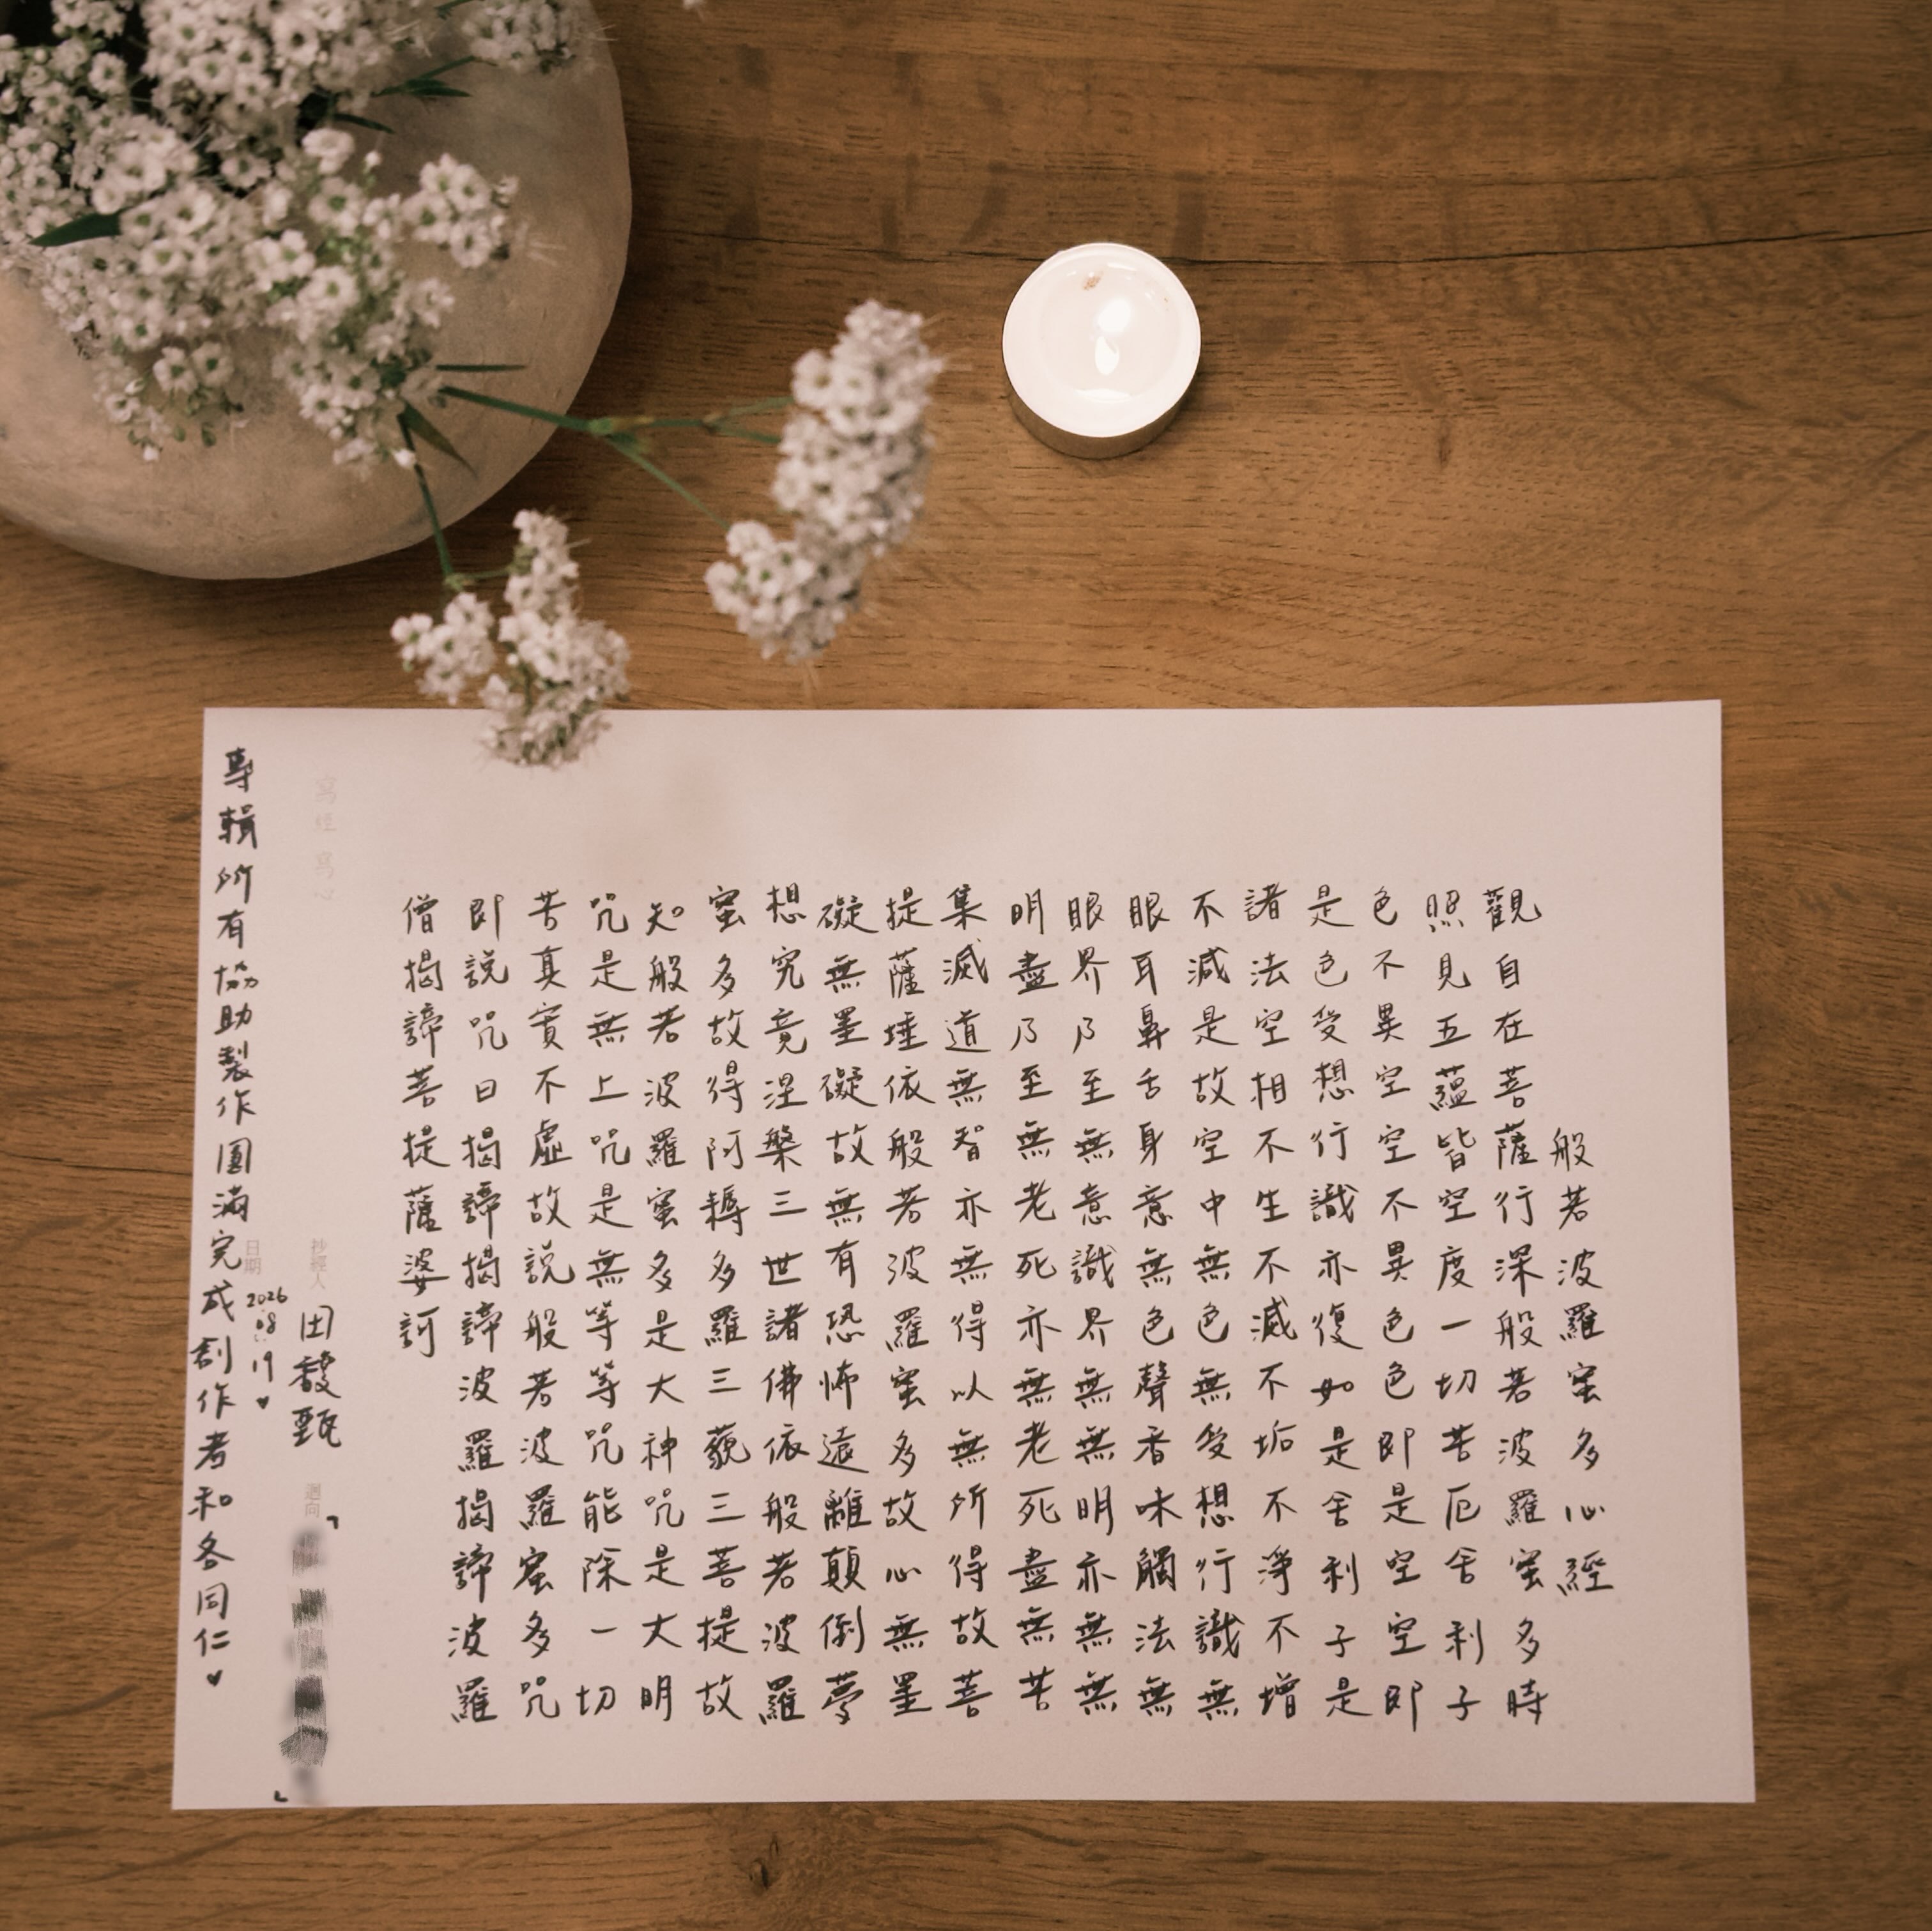 般若波羅蜜多心經
觀自在菩薩行深般若波羅蜜多時
照見五蘊皆空度一切苦厄舍利子
色不異空空不異色色即是空空即
是色受想行識亦復如是舍利子是
諸法空相不生不滅不垢不淨不增
不減是故空中無色無受想行識無
眼耳鼻舌身意無色聲香味觸法無
眼界乃至無意識界無無明亦無無
明盡乃至無老死亦無老死盡無苦
集滅道無智亦無得以無所得故菩
提薩埵依般若波羅蜜多故心無罣
礙無罣礙故無有恐怖遠離顛倒夢
想究竟涅槃三世諸佛依般若波羅
蜜多故得阿耨多羅三藐三菩提故
知般若波羅蜜多是大神咒是大明
咒是無上咒是無等等咒能除一切
苦真實不虛故說般若波羅蜜多咒
即說咒曰揭諦揭諦波羅揭諦波羅
僧揭諦菩提薩婆訶
寫經 寫心
抄經人 田馥甄
迴向「」
日期 2026.08.19 ♥
專輯所有協助製作圓滿完成創作者和各同仁♥